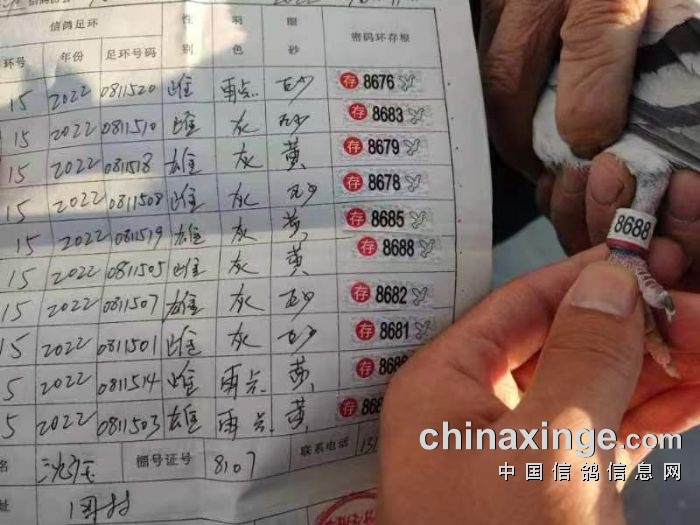 信鸽足环 性别 羽色 眼砂 密码环存根
环号 年份 足环号码
15 2022 0811520 雌 雨点 砂 存 8676
15 2022 0811510 雌 灰 砂 存 8683
15 2022 0811518 雄 灰 黄 存 8679
15 2022 0811508 雌 灰 砂 存 8678
15 2022 0811519 雄 灰 黄 存 8685
15 2022 0811505 雌 灰 黄 存 8688
15 2022 0811507 雄 灰 砂 存 8682
15 2022 0811501 雌 灰 砂 存 8681
5 2022 0811514 雌 雨点 黄 存
5 2022 0811503 雄 雨点 黄 存
名 棚号证号 8107 联系电话
址
8688
chinaxinge.com
中国信鸽信息网